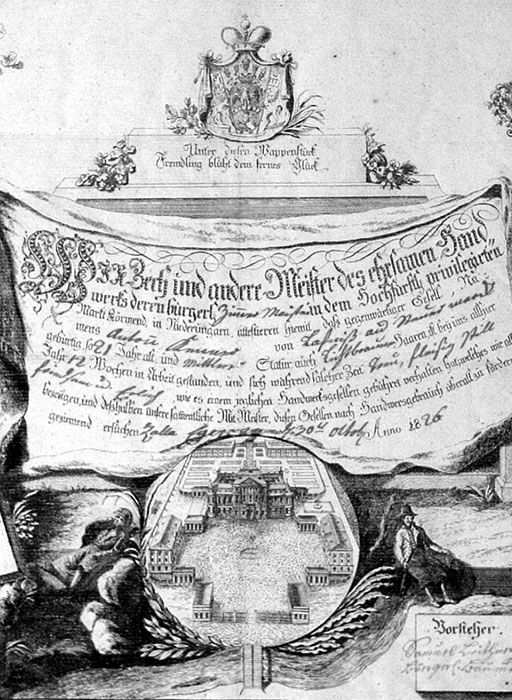 Unter diesen Wappenstück
Fremdling blüht dem fernes Glück
WIR Zech und andere Meister des ehrsamen Hand
werks deren bürgerl. in dem Hochfürstl. privilegirten
Markt Körmend, in Niederungarn, attestieren hiemit, daß gegenwärtiger Gesell, Na-
mens Anton von
gebürtig, so 21 Jahr alt, und mittler Statur auch Lichtbraunen Haaren ist, bey uns allhier
Jahr 12 Wochen in Arbeit gestanden, und sich während solcher Zeit treu, fleißig still
friedsam und ehrlich, wie es einem jeglichen Handwerksgesellen gebühret verhalten hat, welches wir also
bezeigen, und deshalben unsere sammentliche Mit-Meister, diesen Gesellen nach Handwerksgebrauch überall zu fördern
geziemend ersuchen. Zalla Egerszeg d. 30t Octob. Anno 1826
Vorsteher.